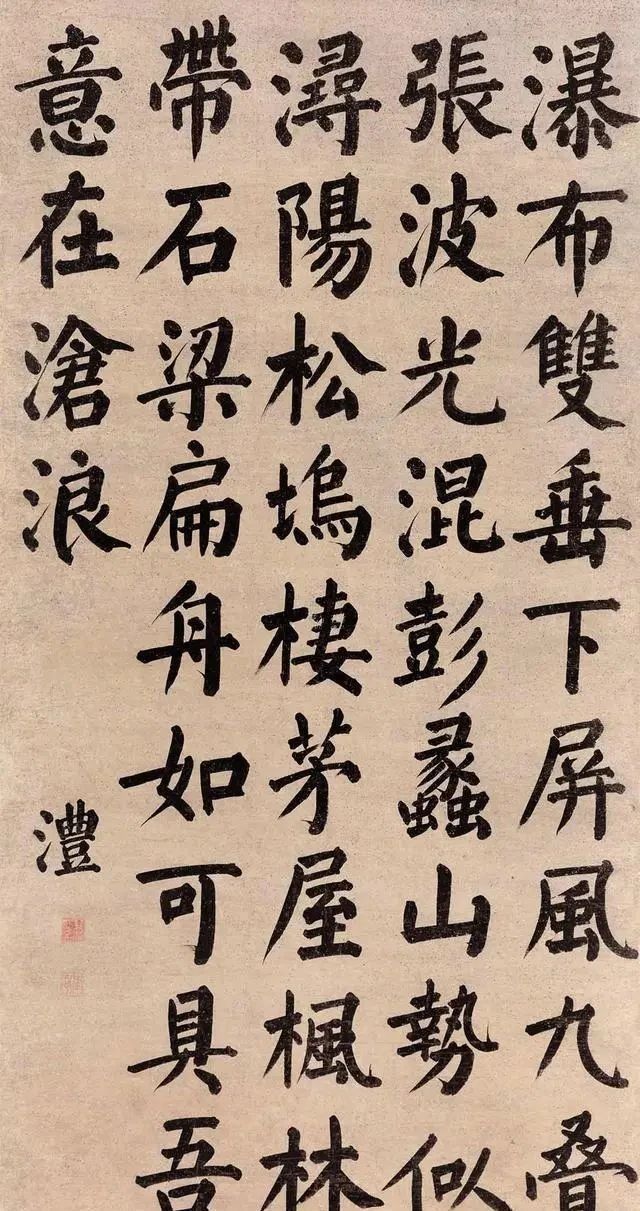 瀑布雙垂下屏風九疊
張波光混彭蠡山勢似
潯陽松塢棲茅屋楓林
帶石梁扁舟如可具吾
意在滄浪
澧